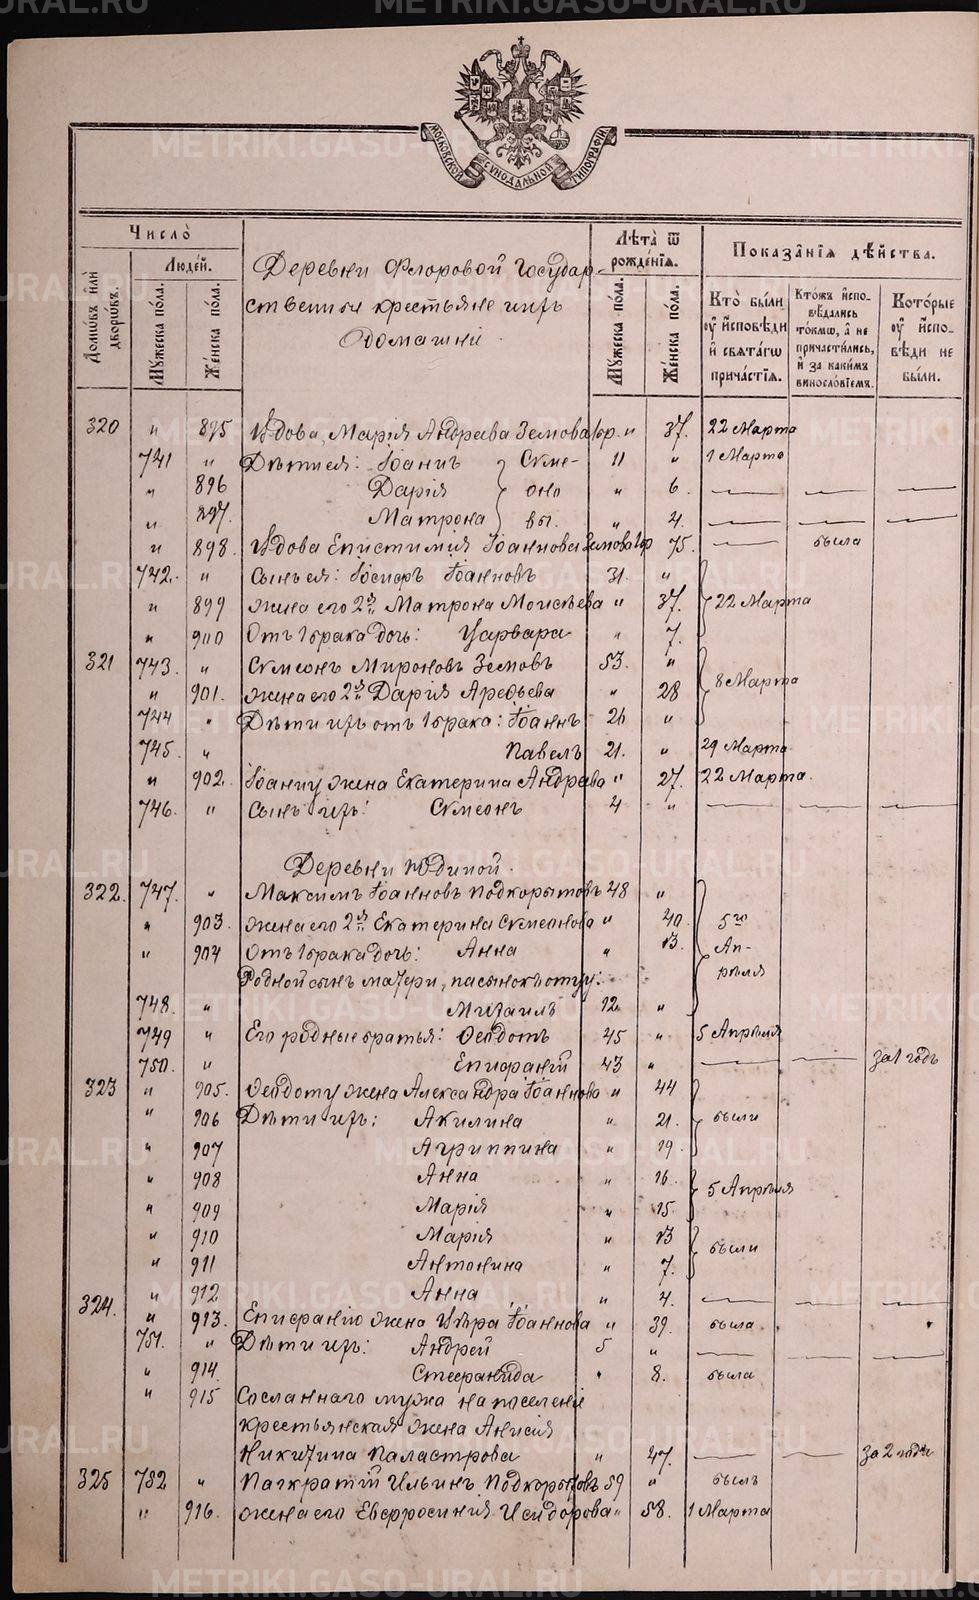 METRIKI.GASO-URAL.RU
МОСКОВСКОЙ СѴНОДАЛЬНОЙ ТИПОГРАФІИ
Число̀
Людéй.
Домѡвъ и҆лѝ дворѡвъ.
Мꙋжеска пола.
Женска пола.
Деревни Флоровой государ-
ственныи крестьяне и ихъ
домашніи
Лѣта̀ ѿ рождéнїѧ.
Мꙋжеска пола.
Женска пола.
Показанїѧ дѣйства.
Кто̀ были ᲂу҆ исповѣди и свѧтагѡ причастїѧ.
Ктожъ исповѣдались токмѡ, а не причастились, и за какимъ винословїемъ.
Которые ᲂу҆ исповѣди не были.
320 " 895 Вдова, Марія Андреева Земова " 37. 22 Марта
741 " Дѣти ея: Іоаннъ Симе- 11 " 1 Марта
" 896 Дарія оно " 6.
" 897. Матрона вы. " 4.
" 898. Вдова Епистимія Іоаннова Земова 75. была
742. " Сынъ ея: Іосифъ Іоанновъ 31. "
" 899 жена его 2я Матрона Моисѣева " 37. 22 Марта
" 900 Отъ 1 брака дочь: Варвара " 7.
321 743. " Симеонъ Мироновъ Земовъ 53. "
" 901. жена его 2я Дарія Арефьева " 28 8 Марта
744 " Дѣти ихъ отъ 1 брака: Іоаннъ 26 "
745. " Павелъ 21. " 29 Марта
" 902. Іоанну жена Екатерина Андреева " 27. 22 Марта.
746. " Сынъ ихъ: Симеонъ 4 "
Деревни Юдиной.
322. 747. " Максимъ Іоанновъ Подкорытовъ 48 "
" 903. жена его 2я Екатерина Симеонова " 40. 5го
" 904 Отъ 1 брака дочь: Анна " 13. Ап-
Родной сынъ матери, пасынокъ отцу: рѣля
748. " Михаилъ 12. "
749 " Его родные братья: Ѳеодотъ 45 " 5 Апрѣля
750. " Епифаній 43 " за 1 годъ
323 " 905. Ѳеодоту жена Александра Іоаннова " 44
" 906 Дѣти ихъ: Акилина " 21. были
" 907 Агриппина " 19.
" 908 Анна " 16.
" 909 Марія " 15. 5 Апрѣля
" 910 Марія " 13
" 911 Антонина " 7. были
" 912 Анна " 4.
324. " 913. Епифанію жена Вѣра Іоаннова " 39. была.
751. " Дѣти ихъ: Андрей 5 "
" 914 Стефанида " 8. была
" 915 Сосланнаго мужа на поселеніе
крестьянская жена Анисія
Никитина Паластрова " 47. за 2 года
325 752 " Панкратій Ильинъ Подкорытовъ 59 " былъ
" 916. жена его Евфросинія Исидорова " 58. 1 Марта